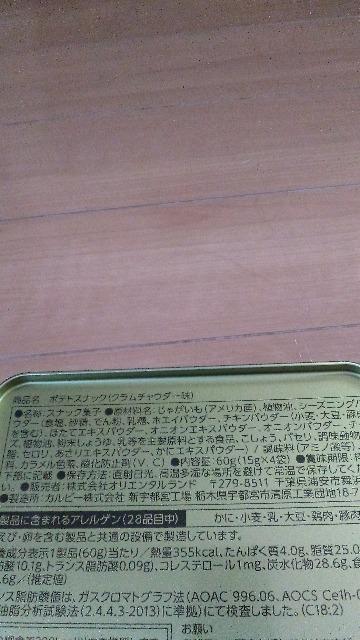 商品名 ポテトスナック(クラムチャウダー味)
●名称:スナック菓子 ●原材料名:じゃがいも(アメリカ産)、植物油、シーズニングパ
ウダー(食塩、砂糖、でん粉、乳糖、ホエイパウダー、チキンパウダー(小麦・大豆・豚
を含む)、ほたてエキスパウダー、オニオンエキスパウダー、
植物油、粉末しょうゆ、乳等を主要原料とする食品、こしょう、パセリ、調味動物
脂、セロリ、あさりエキスパウダー、かにエキスパウダー)/調味料(アミノ酸等)、
料、カラメル色素、酸化防止剤(V.C) ●内容量:60g(15g×4袋) ●賞味期限
下部に記載 ●保存方法:直射日光、高温多湿な場所を避けて常温で保存してく
い。●販売者:株式会社オリエンタルランド 〒279-8511 千葉県浦安市舞浜
●製造所:カルビー株式会社 新宇都宮工場 栃木県宇都宮市清原工業団地18-7
製品に含まれるアレルゲン(28品目中) かに・小麦・乳・大豆・鶏肉・豚肉
えび・卵を含む製品と共通の設備で製造しています。
養成分表示1製品(60g)当たり/熱量355kcal、たんぱく質4.0g、脂質25.0
肪酸10.1g、トランス脂肪酸0.09g)、コレステロール1mg、炭水化物28.6g、食
.6g/(推定値)
ンス脂肪酸値は、ガスクロマトグラフ法(AOAC 996.06、AOCS Ce1h-0
油脂分析試験法(2.4.4.3-2013)に準拠)にて検査しました。(C18:2)
お願い